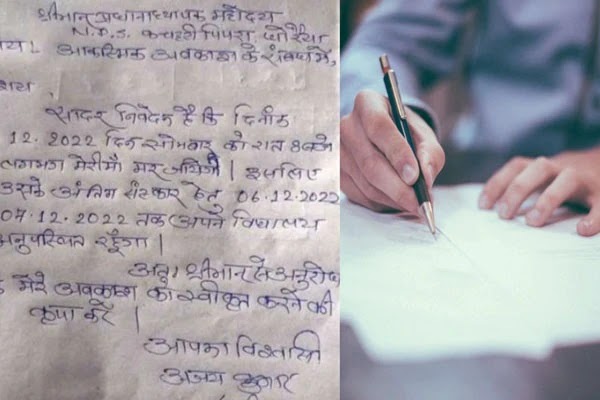 श्रीमान् प्रधानाध्यापक महोदय
N.P.S. कचहरी पिपरा,
आकस्मिक अवकाश के संबंध में,
सादर निवेदन है कि दिनांक
12.2022 दिन सोमवार को रात 8 बजे
लगभग मेरी माँ मर जायेगी । इसलिए
उसके अंतिम संस्कार हेतु 06.12.2022
07.12.2022 तक अपने विद्यालय
अनुपस्थित रहूँगा ।
अतः श्रीमान से अनुरोध
मेरे अवकाश को स्वीकृत करने की
कृपा करें ।
आपका विश्वासी
अजय कुमार